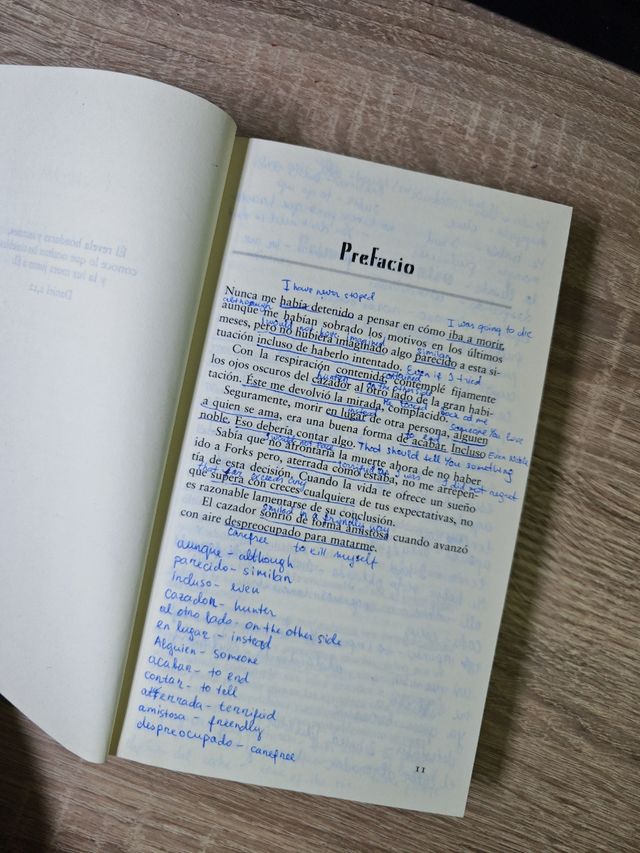 El revela honduras y secretos,
conoce lo que ocultan las tinieblas,
y la luz mora junto a Él.
Daniel 2,22
Prefacio
I have never stoped
Nunca me había detenido a pensar en cómo iba a morir,
although
I was going to die
aunque me habían sobrado los motivos en los últimos
would not have imagined
similar
meses, pero no hubiera imaginado algo parecido a esta si-
Even if I tried
tuación incluso de haberlo intentado.
Con la respiración contenida, contemplé fijamente
hunter
on the other side
los ojos oscuros del cazador al otro lado de la gran habi-
look at me
tación. Éste me devolvió la mirada, complacido.
instead
someone you love
Seguramente, morir en lugar de otra persona, alguien
to end
a quien se ama, era una buena forma de acabar. Incluso
Even Noble
noble. Eso debería contar algo.
That should tell you something
I would not face
Sabía que no afrontaría la muerte ahora de no haber
terrified as I was
I did not regret
ido a Forks pero, aterrada como estaba, no me arrepen-
tía de esta decisión. Cuando la vida te ofrece un sueño
that far exceeds any
que supera con creces cualquiera de tus expectativas, no
es razonable lamentarse de su conclusión.
smiled in a friendly way
El cazador sonrió de forma amistosa cuando avanzó
con aire despreocupado para matarme.
carefree
to kill myself
aunque - although
parecido - similar
incluso - even
cazador - hunter
al otro lado - on the other side
en lugar - instead
Alguien - someone
acabar - to end
contar - to tell
aterrada - terrified
amistosa - friendly
despreocupado - carefree
11